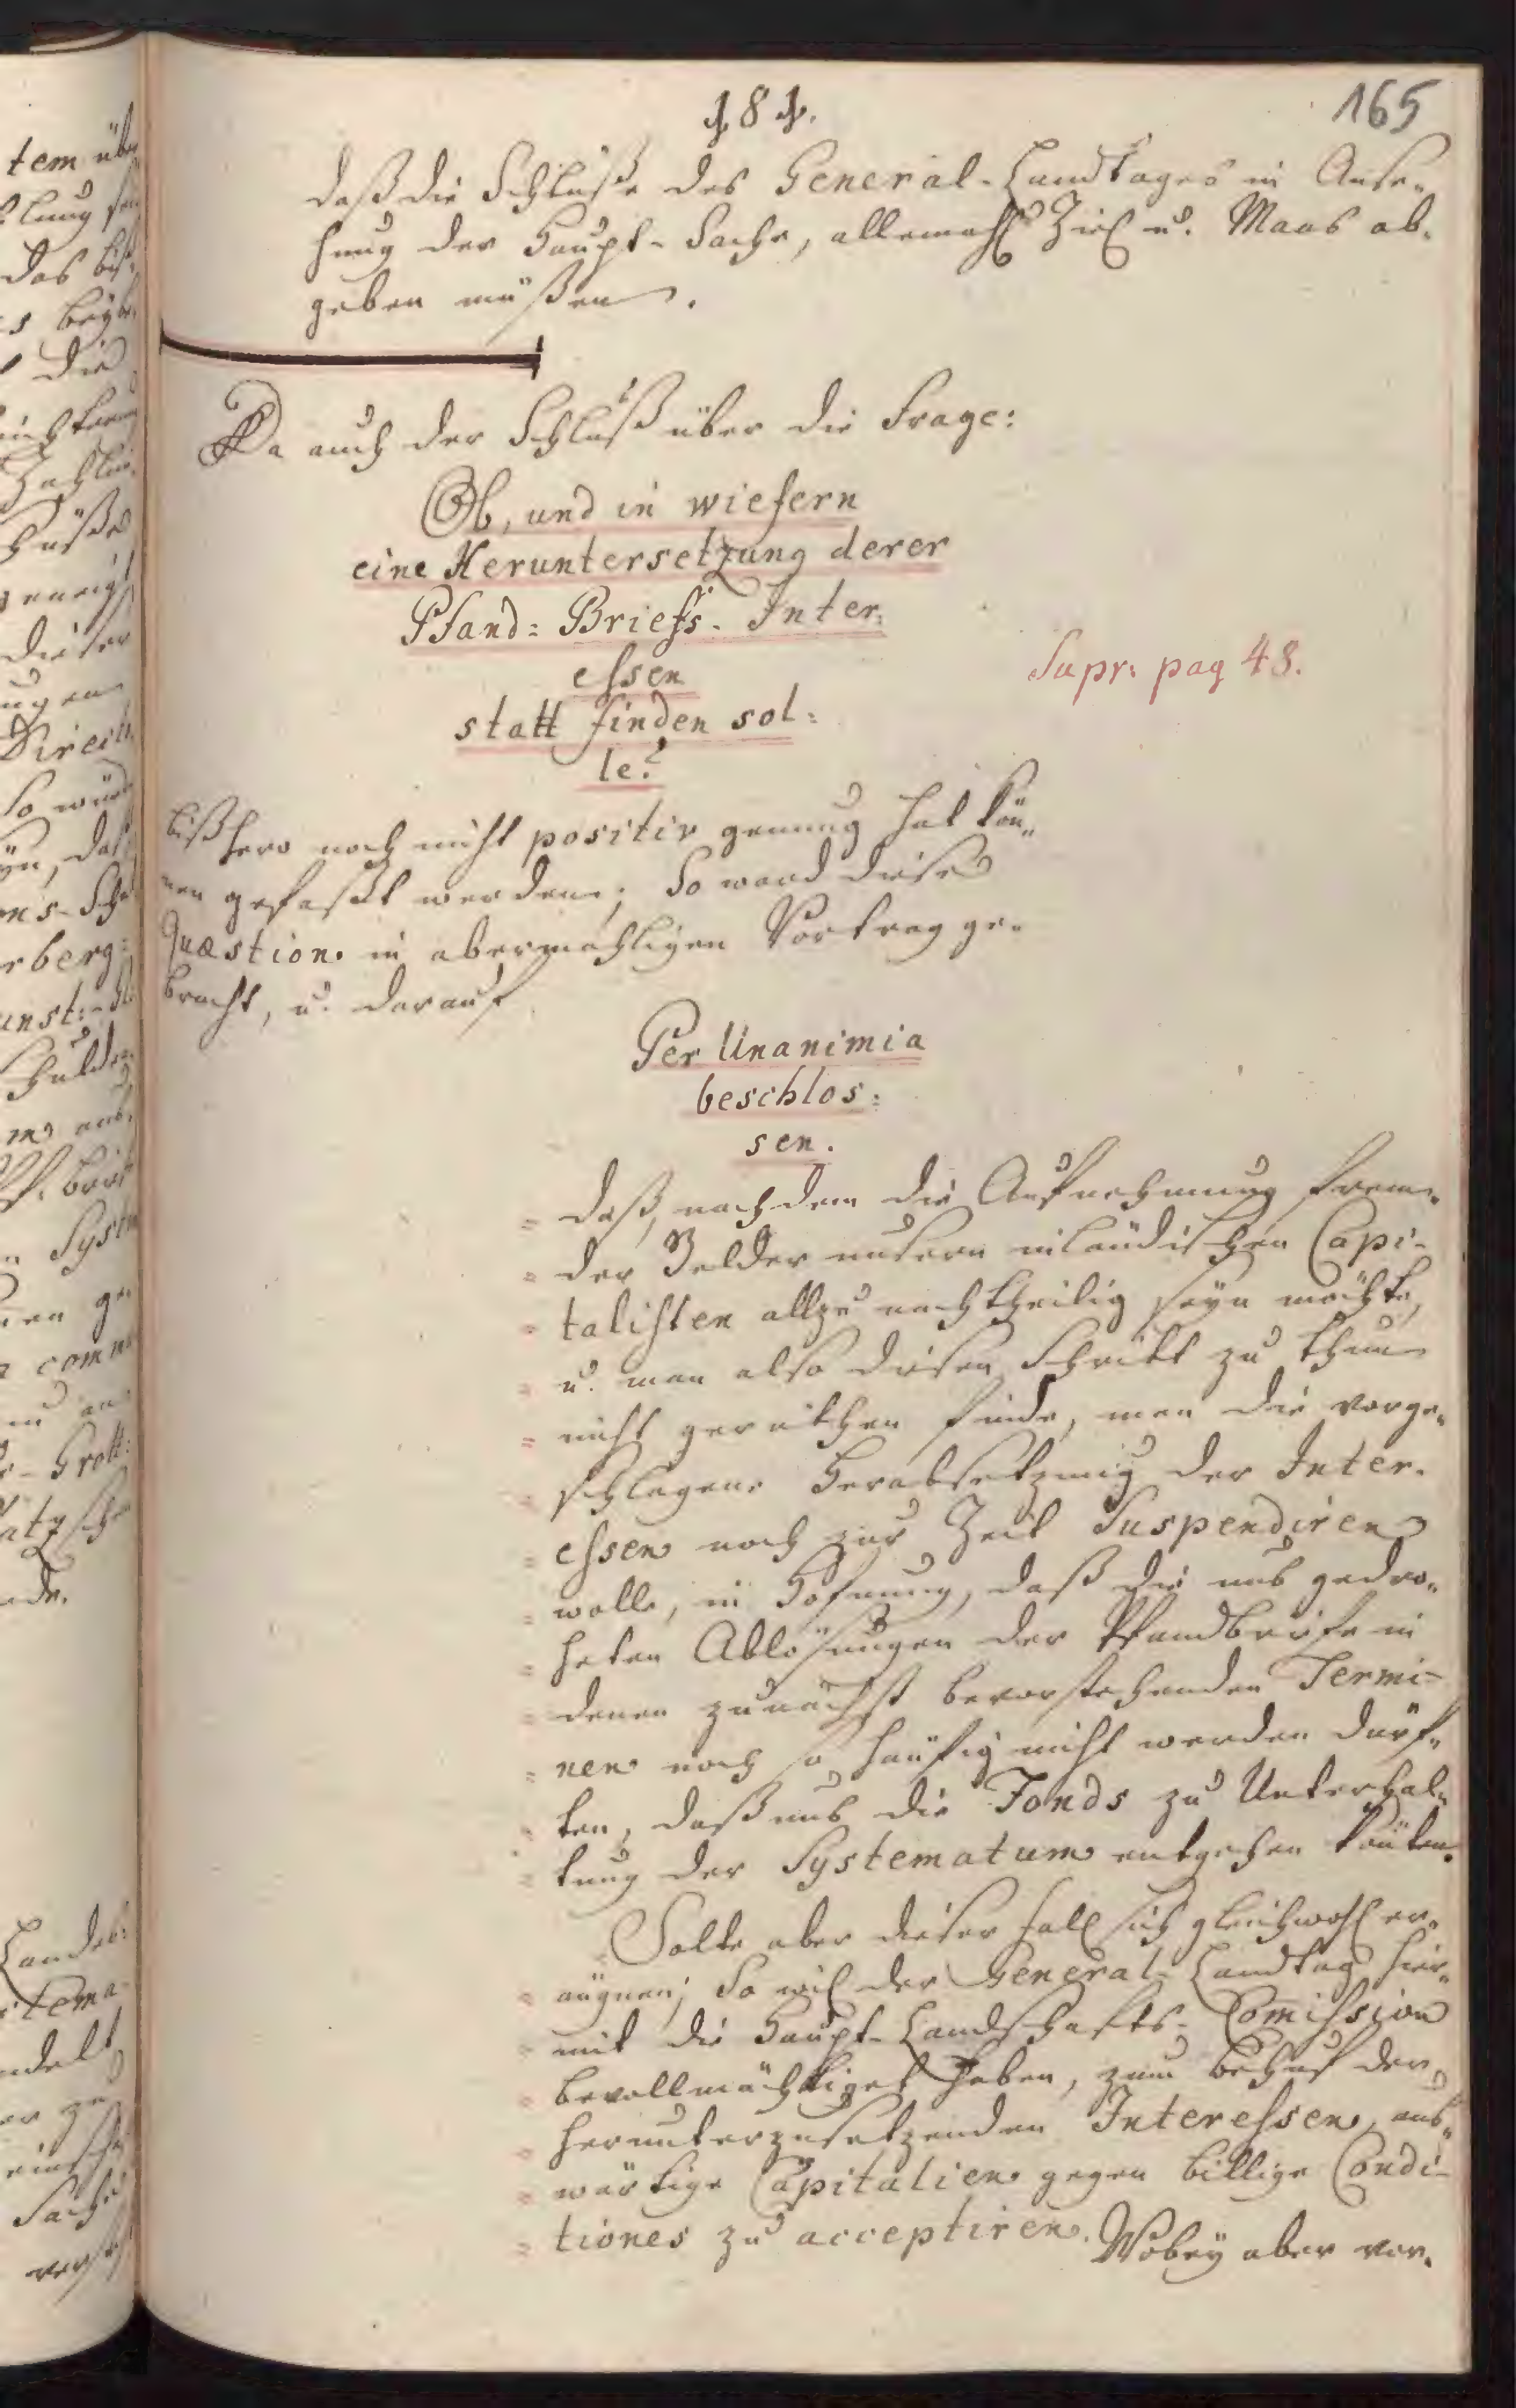 181.
165
daß die Schlüße des General-Landtages in Anse„
hung der Haupt-Sache, allemahl Ziel u. Maas ab„
geben müßen.
Da auch der Schluß über die Frage:
Ob, und in wiefern
eine Heruntersetzung derer
Pfand=Briefs-Inter=
essen
statt finden sol=
le?
Supr: pag 48.
bißhero noch nicht positiv genung hat kön„
nen gefaßt werden; So ward diese
Quæstion in abermahligen Vortrag ge„
bracht, u. darauf
Per Unanimia
beschlos=
sen.
= daß, nachdem die Aufnehmung frem„
= der Gelder unsern inländischen Capi-
= talisten allzu nachtheilig seyn möchte,
= u. man also diesen Schritt zu thun
= nicht gerathen finde, man die vorge„
= schlagene Herabsetzung der Inter-
= essen noch zur Zeit Suspendiren
= wolle, in Hofnung, daß die uns gedro„
= heten Ablösungen der Pfandbriefe in
= denen zunächst bevorstehenden Termi-
= nen noch so häufig nicht werden dürf„
= ten, daß uns die Fonds zu Unterhal„
= tung der Systematum entgehen könten.
Solte aber dieser Fall sich gleichwohl er„
= äügnen; So wil der General-Landtag hier„
= mit die Haupt-Landschafts-Comission
= bevollmächtiget haben, zum Behuf der
= herunterzusetzenden Interessen, aus„
= wärtige Capitalien gegen billige Condi-
= tiones zu acceptiren. Wobey aber vor„